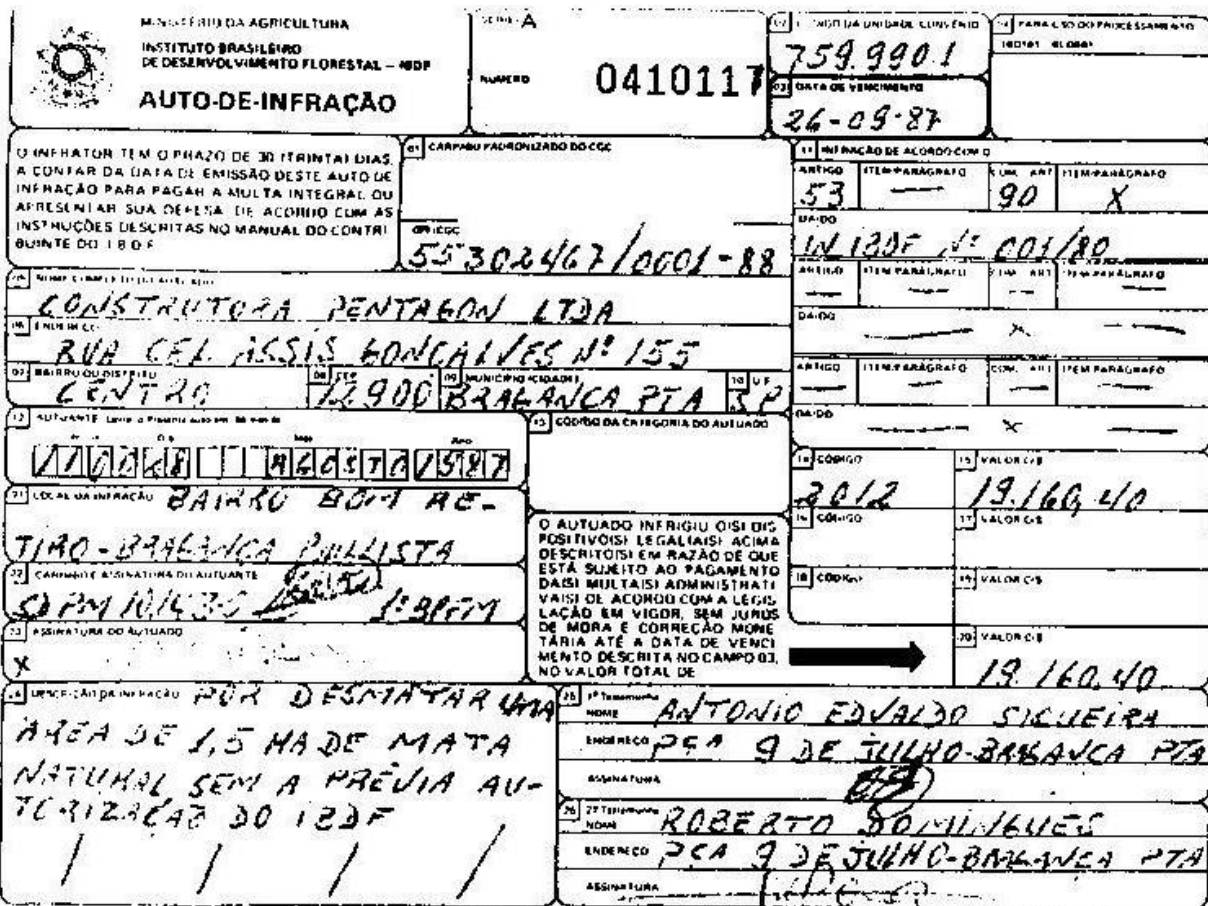 MINISTÉRIO DA AGRICULTURA
INSTITUTO BRASILEIRO
DE DESENVOLVIMENTO FLORESTAL — IBDF
AUTO-DE-INFRAÇÃO
SERIE - A
NUMERO 0410117
02 CÓDIGO DA UNIDADE CONVÊNIO
759.990.1
03 DATA DE VENCIMENTO
26-09-87
PARA USO DO PROCESSAMENTO
O INFRATOR TEM O PRAZO DE 30 (TRINTA) DIAS,
A CONTAR DA DATA DE EMISSÃO DESTE AUTO DE
INFRAÇÃO PARA PAGAR A MULTA INTEGRAL OU
APRESENTAR SUA DEFESA, DE ACORDO COM AS
INSTRUÇÕES DESCRITAS NO MANUAL DO CONTRI
BUINTE DO I B D F
CARIMBO PADRONIZADO DO CGC
CPF/CGC
55302467/0001-88
11 INFRAÇÃO DE ACORDO COM O
ARTIGO ITEM/PARÁGRAFO COM. ART ITEM/PARÁGRAFO
53 — 90 X
DA/DO
IN IBDF Nº 001/80
ARTIGO ITEM/PARÁGRAFO COM. ART ITEM/PARÁGRAFO
— — — —
DA/DO
— X —
ARTIGO ITEM/PARÁGRAFO COM. ART ITEM/PARÁGRAFO
DA/DO
— X —
05 NOME COMPLETO DO AUTUADO
CONSTRUTORA PENTAGON LTDA
06 ENDEREÇO
RUA CEL ASSIS GONÇALVES Nº 155
07 BAIRRO OU DISTRITO
CENTRO
08 CEP
12.900
09 MUNICÍPIO (CIDADE)
BRAGANCA PTA
10 U F
SP
12 AUTUANTE
Dia Mes Ano
AGOSTO 1987
13 CÓDIGO DA CATEGORIA DO AUTUADO
14 CÓDIGO 15 VALOR Cz$
2012 19.160,40
16 CÓDIGO 17 VALOR Cz$
18 CÓDIGO 19 VALOR Cz$
20 VALOR Cz$
19.160,40
21 LOCAL DA INFRAÇÃO BAIRRO BOM RE-
TIRO - BRAGANÇA PAULISTA
22 CARIMBO E ASSINATURA DO AUTUANTE
1º BPFM
23 ASSINATURA DO AUTUADO
X
O AUTUADO INFRIGIU O(S) DIS
POSITIVO(S) LEGAL(AIS) ACIMA
DESCRITO(S) EM RAZÃO DE QUE
ESTÁ SUJEITO AO PAGAMENTO
DA(S) MULTA(S) ADMINISTRATI
VA(S) DE ACORDO COM A LEGIS
LAÇÃO EM VIGOR, SEM JUROS
DE MORA E CORREÇÃO MONE
TÁRIA ATÉ A DATA DE VENCI
MENTO DESCRITA NO CAMPO 03,
NO VALOR TOTAL DE
24 DESCRIÇÃO DA INFRAÇÃO POR DESMATAR UMA
AREA DE 1,5 HA DE MATA
NATURAL SEM A PRÉVIA AU-
TORIZAÇÃO DO IBDF
25 1ª Testemunha
NOME ANTONIO EDVALDO SIQUEIRA
ENDEREÇO PÇA 9 DE JULHO-BRAGANCA PTA
ASSINATURA
26 2ª Testemunha
NOME ROBERTO DOMINGUES
ENDEREÇO PCA 9 DE JULHO-BRAGANCA PTA
ASSINATURA